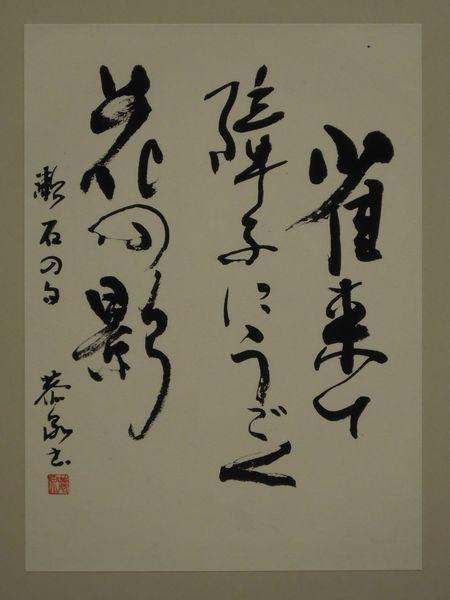 雀来て
障子にうごく
花の影
漱石の句
恭泉書